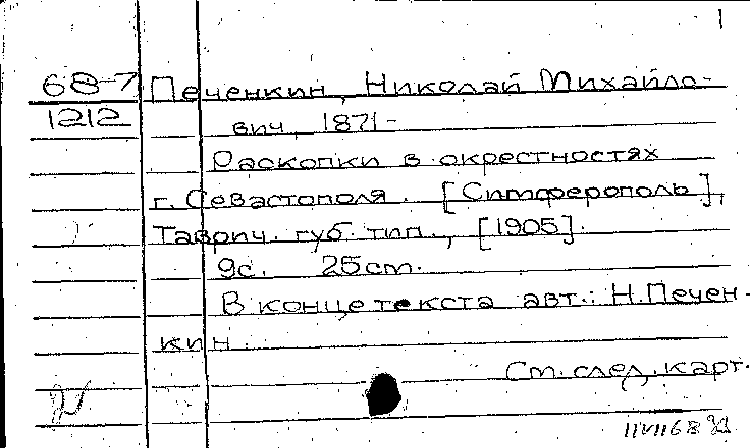 1
68-7 Печенкин, Николай Михайло-
1212 вич, 1871-
Раскопки в окрестностях
г. Севастополя. [Симферополь],
Таврич. губ. тип., [1905].
9с. 25см.
В конце текста авт.: Н. Печен-
кин.
См. след. карт.